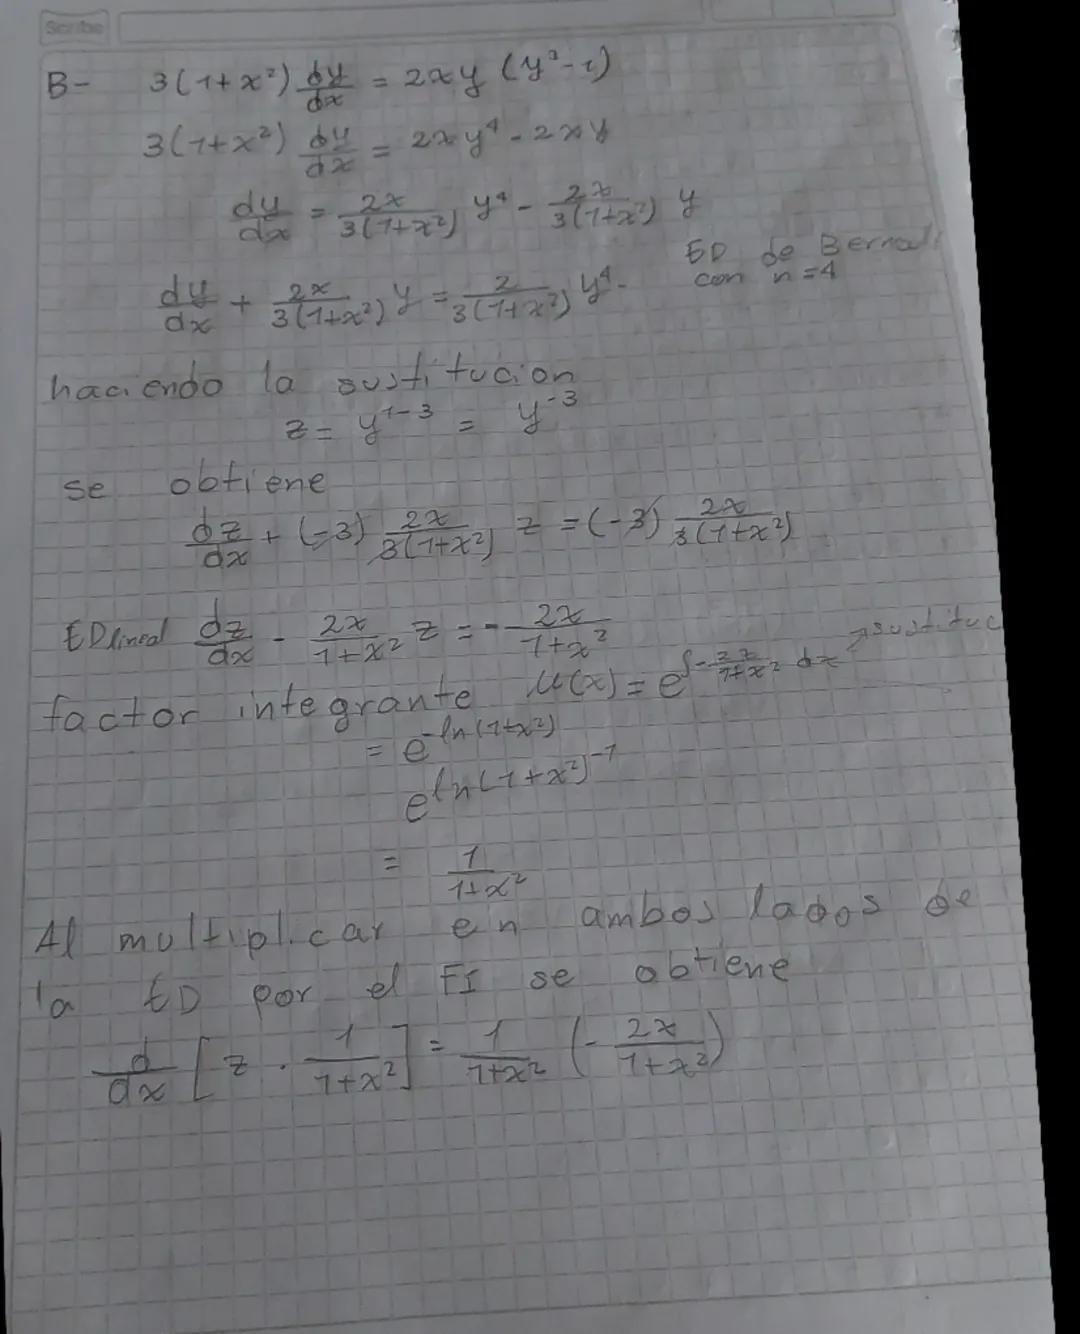 Scribe
B- 3(1+x²) dy/dx = 2xy (y³-1)
3(1+x²) dy/dx = 2xy⁴ - 2xy
dy/dx = 2x/3(1+x²) y⁴ - 2x/3(1+x²) y
ED de Bernoulli
con n=4
dy/dx + 2x/3(1+x²) y = 2/3(1+x²) y⁴.
haciendo la sustitucion
z = y¹⁻³ = y⁻³
se obtiene
dz/dx + (-3) 2x/3(1+x²) z = (-3) 2x/3(1+x²)
ED lineal dz/dx - 2x/1+x² z = - 2x/1+x²
factor integrante μ(x) = e^∫-2x/1+x² dx → sustituc
= e^-ln(1+x²)
e^ln(1+x²)⁻¹
= 1/1+x²
Al multiplicar en ambos lados de
la ED por el FI se obtiene
d/dx [z · 1/1+x²] = 1/1+x² (- 2x/1+x²)